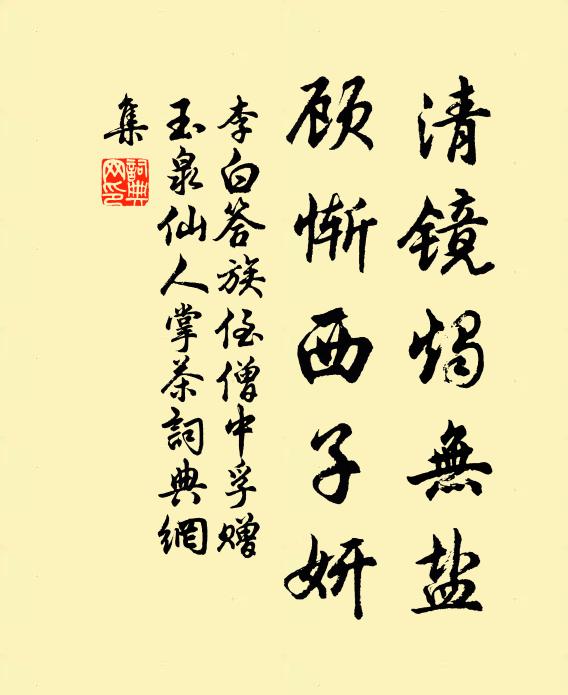 清镜烛無盐
顾惭西子妍
李白答族侄僧中孚赠
玉泉仙人掌茶詞典網
集
詞典網印